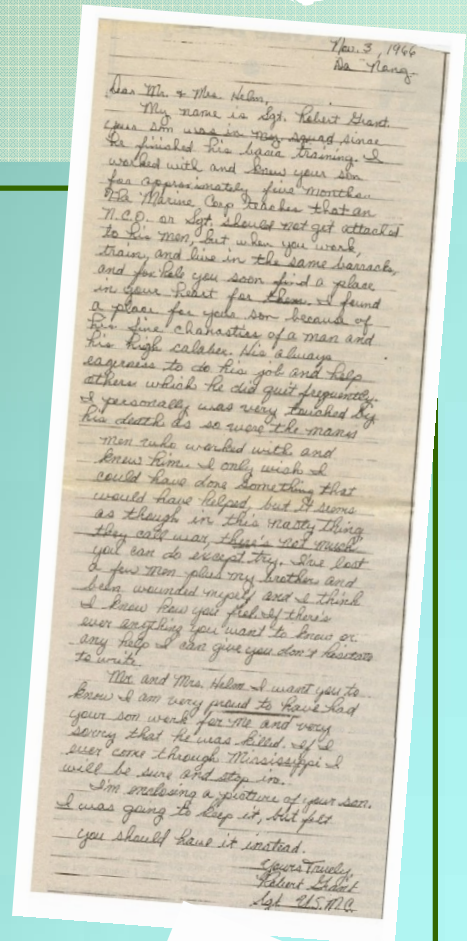 Nov. 3, 1966
Da Nang
Dear Mr. & Mrs. Helm,
My name is Sgt. Robert Grant.
your son was in my squad since
he finished his basic training. I
worked with and knew your son
for approximately five months.
The Marine Corp teaches that an
N.C.O. or Sgt. should not get attached
to his men, but when you work,
train, and live in the same barracks,
and fox hole you soon find a place
in your heart for them. I found
a place for your son because of
his fine charastics of a man and
his high calaber. His always
eagerness to do his job and help
others which he did quit frequently.
I personally was very touched by
his death as so were the many
men who worked with and
knew him. I only wish I
could have done something that
would have helped, but it seems
as though in this nasty thing
they call war, there's not much
you can do except try. I've lost
a few men plus my brother and
been wounded myself and I think
I know how you feel. If there's
ever anything you want to know or
any help I can give you don't hesitate
to write.
Mr. and Mrs. Helm I want you to
know I am very proud to have had
your son work for me and very
sorry that he was killed. If I
ever come through Mississippi I
will be sure and stop in.
I'm enclosing a picture of your son.
I was going to keep it, but felt
you should have it instead.
Yours Truely,
Robert Grant
Sgt. U.S.M.C.